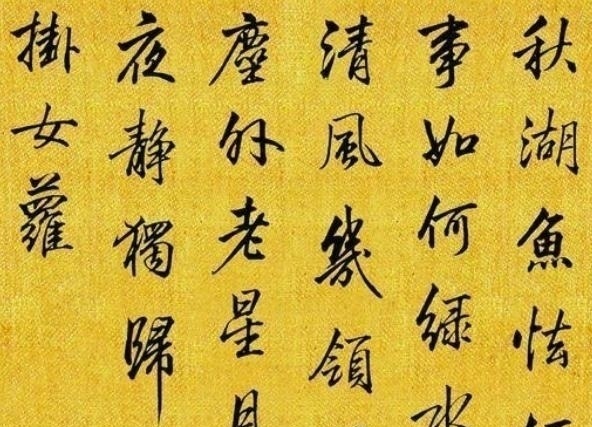 秋湖魚怯
事如何綠水
清風幾領
塵外老星月
夜靜獨歸
掛女蘿